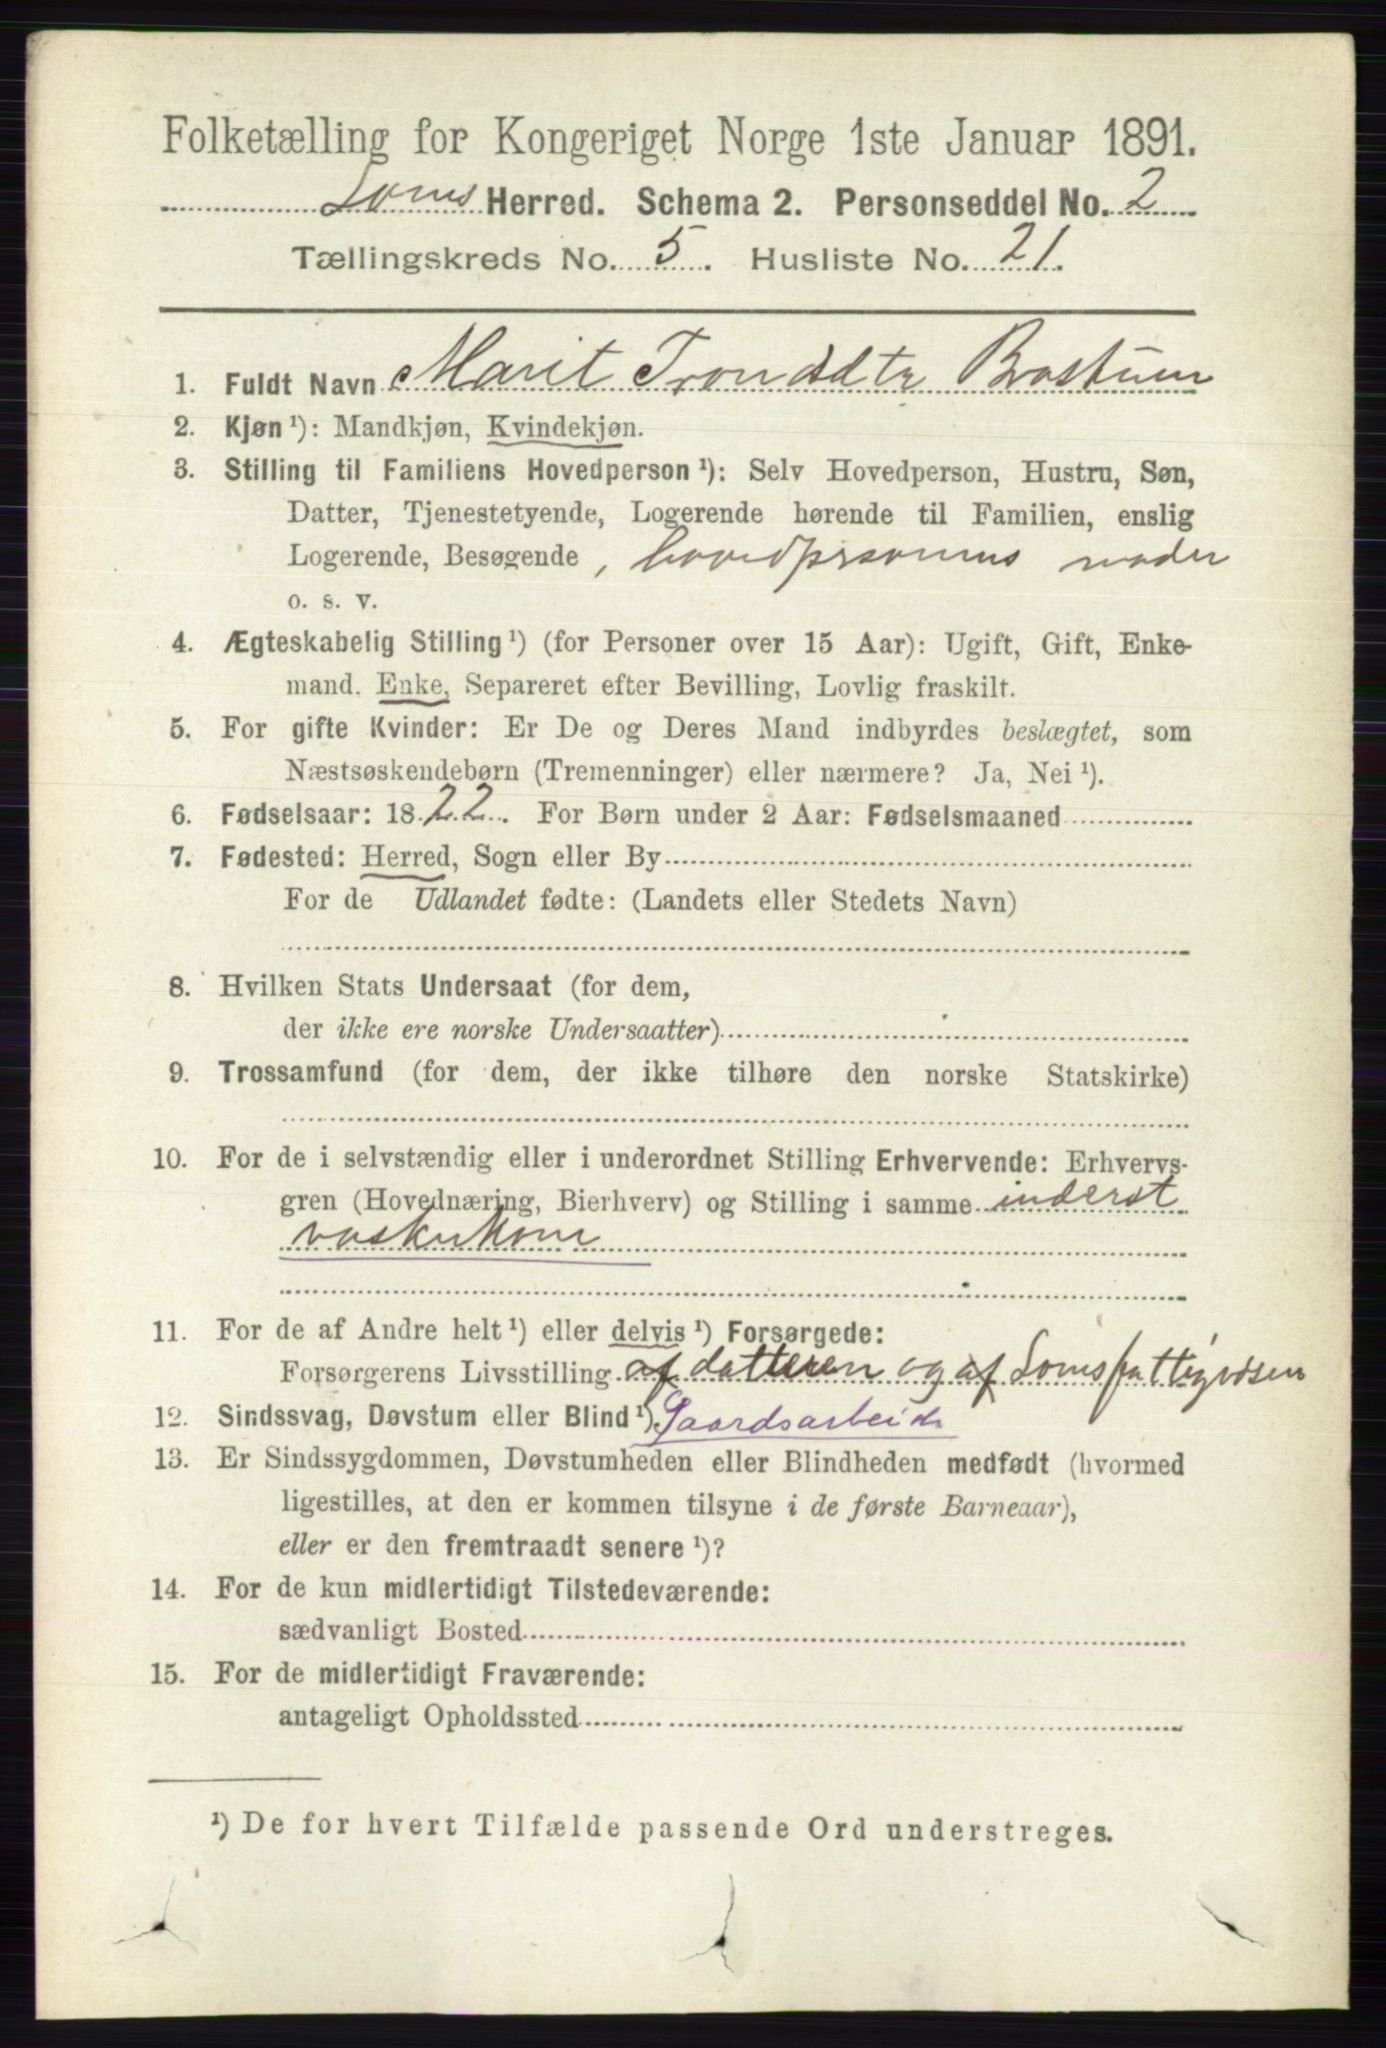 Folketælling for Kongeriget Norge 1ste Januar 1891.
Loms Herred. Schema 2. Personseddel No. 2
Tællingskreds No. 5. Husliste No. 21.
1. Fuldt Navn Marit Trondsdtr
2. Kjøn ¹): Mandkjøn, Kvindekjøn.
3. Stilling til Familiens Hovedperson ¹): Selv Hovedperson, Hustru, Søn,
Datter, Tjenestetyende, Logerende hørende til Familien, enslig
Logerende, Besøgende, hovedpersonens moder
o. s. v.
4. Ægteskabelig Stilling ¹) (for Personer over 15 Aar): Ugift, Gift, Enke-
mand. Enke, Separeret efter Bevilling, Lovlig fraskilt.
5. For gifte Kvinder: Er De og Deres Mand indbyrdes beslægtet, som
Næstsøskendebørn (Tremenninger) eller nærmere? Ja, Nei ¹).
6. Fødselsaar: 1822. For Børn under 2 Aar: Fødselsmaaned
7. Fødested: Herred, Sogn eller By
For de Udlandet fødte: (Landets eller Stedets Navn)
8. Hvilken Stats Undersaat (for dem,
der ikke ere norske Undersaatter)
9. Trossamfund (for dem, der ikke tilhøre den norske Statskirke)
10. For de i selvstændig eller i underordnet Stilling Erhvervende: Erhvervs-
gren (Hovednæring, Bierhverv) og Stilling i samme inderst
vaskerkone
11. For de af Andre helt ¹) eller delvis ¹) Forsørgede:
Forsørgerens Livsstilling af datteren og af Loms fattigvæsen
12. Sindssvag, Døvstum eller Blind ¹). Gaardsarbeide
13. Er Sindssygdommen, Døvstumheden eller Blindheden medfødt (hvormed
ligestilles, at den er kommen tilsyne i de første Barneaar),
eller er den fremtraadt senere ¹)?
14. For de kun midlertidigt Tilstedeværende:
sædvanligt Bosted
15. For de midlertidigt Fraværende:
antageligt Opholdssted
¹) De for hvert Tilfælde passende Ord understreges.